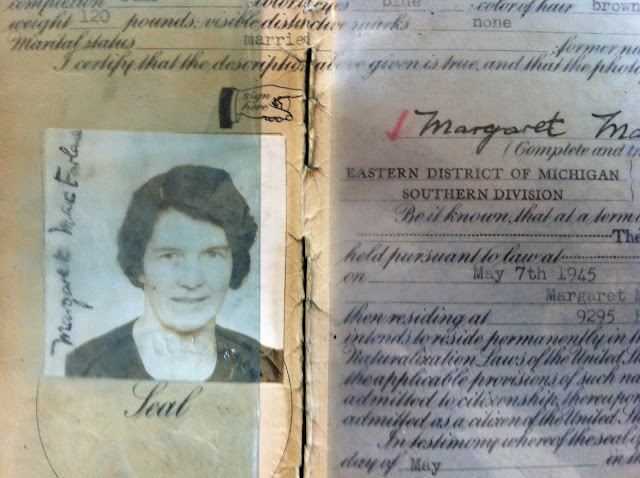 complexion color of eyes blue color of hair brown
weight 120 pounds; visible distinctive marks none
Marital status married former na
I certify that the description above given is true, and that the photo
sign here
Margaret Ma
(Complete and tr
EASTERN DISTRICT OF MICHIGAN
SOUTHERN DIVISION
Be it known, that at a term
The
held pursuant to law at
on May 7th 1945
Margaret M
then residing at 9295
intends to reside permanently in th
Naturalization Laws of the United St
the applicable provisions of such na
admitted to citizenship, thereupon
admitted as a citizen of the United Stat
In testimony whereof the seal o
day of May in th
Margaret MacFarlane
Seal